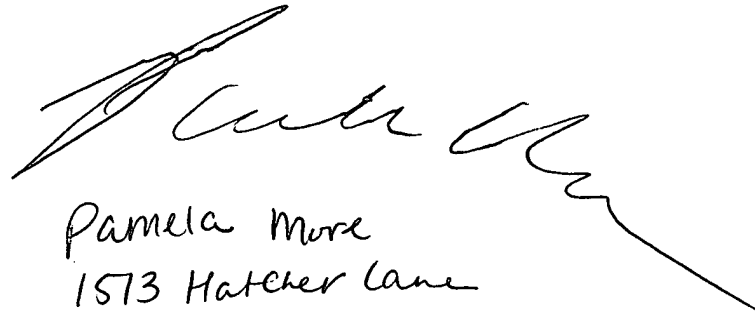 Pamela More
1513 Hatcher Lane